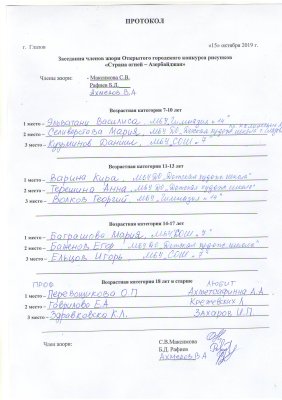 ПРОТОКОЛ
г. Глазов
«15» октября 2019 г.
Заседания членов жюри Открытого городского конкурса рисунков
«Страна огней – Азербайджан»
Члены жюри: - Максимова С.В.
Рафиев Б.Д.
Ахмедов В.А
Возрастная категория 7-10 лет
1 место – Василиса, МБУ "Гимназия №14"
2 место – Селивёрстова Мария, МБУ ДО "Детская художе школа"
3 место – Кузьминов Даниил, МБУ "СОШ №7"
Возрастная категория 11-13 лет
1 место – Варина Кира, МБУ ДО "Детская художе школа"
2 место – Терешина Анна, МБУ ДО "Детская художе школа"
3 место – Волков Георгий, МБУ "Гимназия №14"
Возрастная категория 14-17 лет
1 место – Баграшова Мария, МБУ "СОШ №7"
2 место – Баженов Егор, МБУ ДО "Детская художе школа"
3 место – Ельцов Игорь, МБУ "СОШ №7"
Возрастная категория 18 лет и старше
ПРОФ ЛЮБИТ
1 место – Перевощикова О.П
2 место – Гаврилова Е.А.
3 место – Здравковска К.Л. Посаженников В.
Члены жюри: С.В.Максимова
Б.Д. Рафиев
Ахмедов В.А